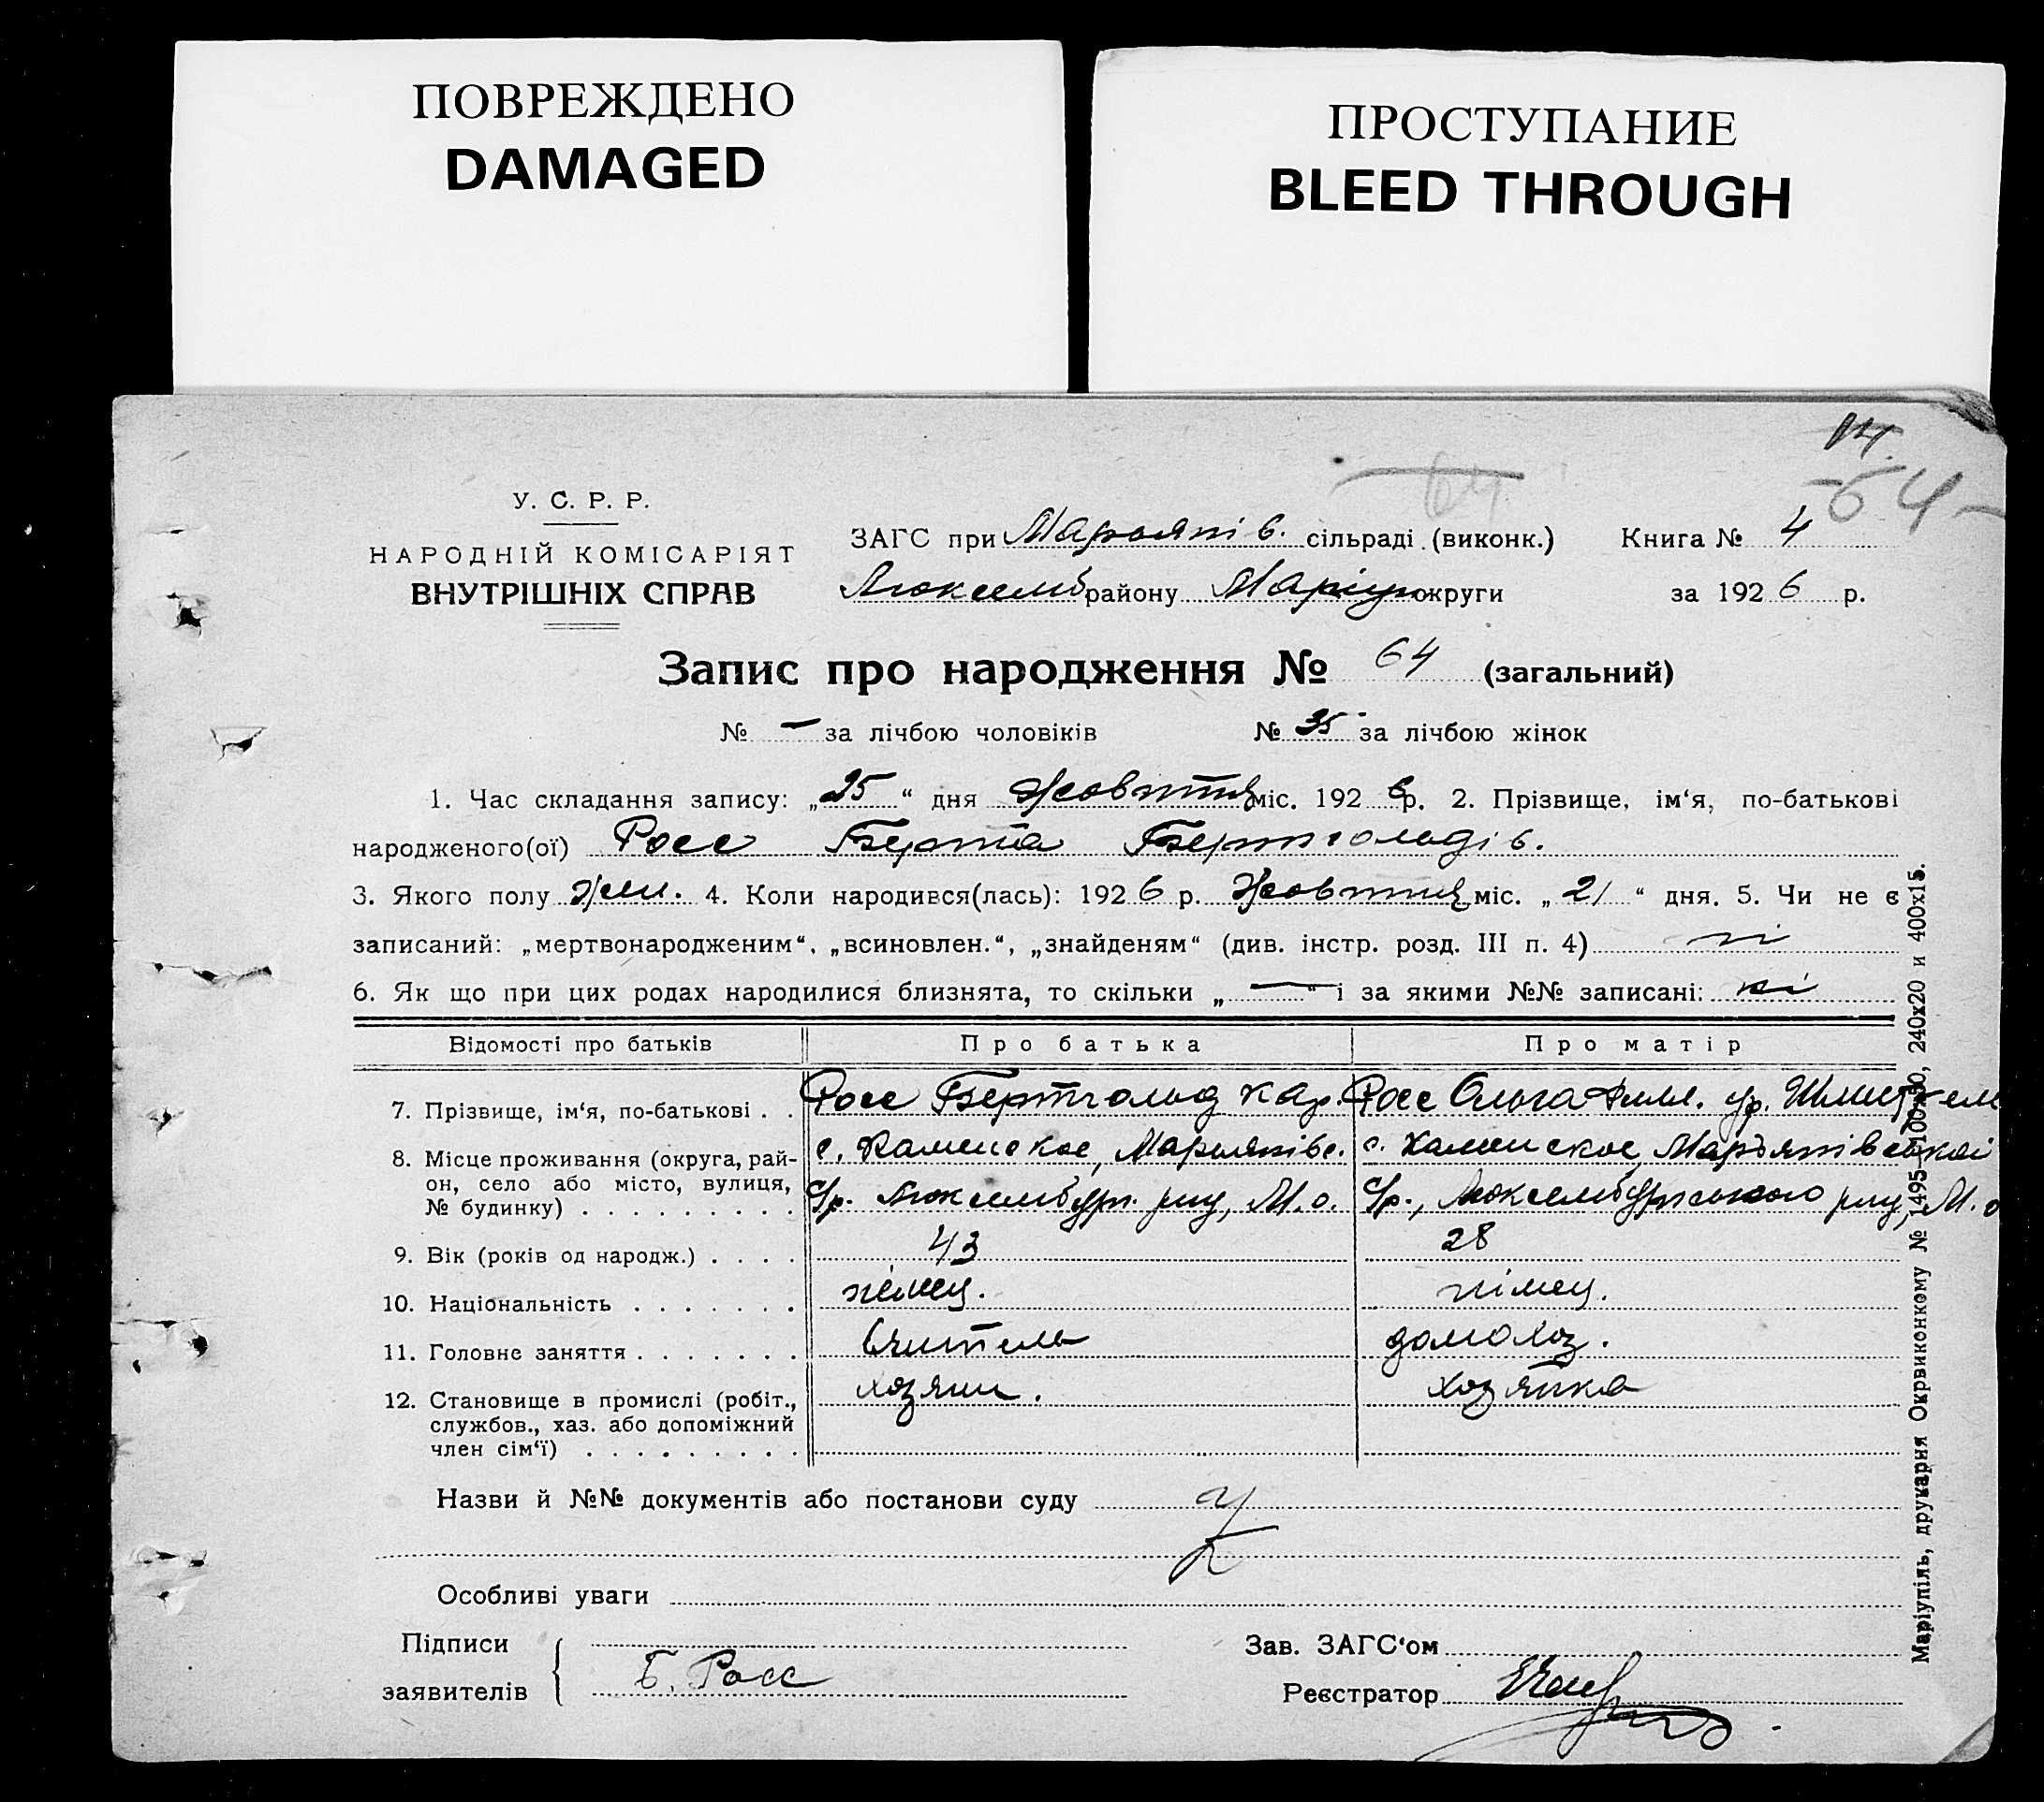 ПОВРЕЖДЕНО
DAMAGED
ПРОСТУПАНИЕ
BLEED THROUGH
14.
64
-64-
У. С. Р. Р.
НАРОДНІЙ КОМІСАРІЯТ
ВНУТРІШНІХ СПРАВ
ЗАГС при Марьянів. сільраді (виконк.) Книга № 4
Люксемб району Маріуп округи за 1926 р.
Запис про народження № 64 (загальний)
№ — за лічбою чоловіків № 35 за лічбою жінок
1. Час складання запису: „25“ дня Жовтня міс. 1926 р. 2. Прізвище, ім‘я, по-батькові
народженого(ої) Росс Берта Бертгольдів.
3. Якого полу жін. 4. Коли народився(лась): 1926 р. Жовтня міс. „21“ дня. 5. Чи не є
записаний: „мертвонародженим“, „всиновлен.“, „знайденям“ (див. інстр. розд. III п. 4) ні
6. Як що при цих родах народилися близнята, то скільки „—“ і за якими №№ записані: ні
Відомості про батьків Про батька Про матір
7. Прізвище, ім‘я, по-батькові . . Росс Бертгольд Кар. Росс Ольга ур.
8. Місце проживання (округа, рай-
он, село або місто, вулиця,
№ будинку) . . . . . . . . .
с. Каменское, Марьянівс. с. Каменское, Марьянівської
С/р. Люксембург. р-ну, М.о. С/р., Люксембургського р-ну, М.о
9. Вік (років од народж.) . . . . 43 28
10. Національність . . . . . . . німец. німец.
11. Головне заняття . . . . . . . Вчитель домохоз.
12. Становище в промислі (робіт.,
службов., хаз. або допоміжний
член сім‘ї) . . . . . . . . .
хозяин. хозяйка
Назви й №№ документів або постанови суду
Особливі уваги
Підписи
заявителів Б. Росс
Зав. ЗАГС‘ом
Реєстратор
Маріупіль, друкарня Окрвиконкому № 1495—100х30, 240х20 и 400х15.